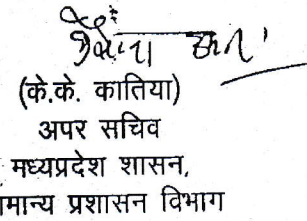 (के.के. कातिया)
अपर सचिव
मध्यप्रदेश शासन,
मान्य प्रशासन विभाग